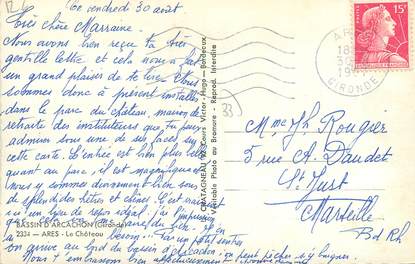 Ce vendredi 30 août
Très chère Marraine.
Nous avons bien reçu ta très
gentille lettre et cela nous a fait
un grand plaisir de te lire. Nous
sommes donc à présent installés
dans le parc du château, maison de
retraite des instituteurs que tu peux
admirer sous une de ses faces sur
cette carte. L'entrée est bien jolie
quant au parc, il est magnifique
nous sommes environnés bien sous
de splendides hêtres et chênes. C'est
un lieu de repos idéal.
besoin. un petit sentier
on arrive au bord du bassin d'arcachon, on peut pêcher, s'y baigner
Nous t'embrassons bien affectueusement
BASSIN D'ARCACHON (Gironde)
2334 - ARES - Le Château
CHATAGNEAU 92 Cours Victor-Hugo - Bordeaux
Véritable Photo au Bromure - Reprod. Interdite
33
15F
ARES
30
GIRONDE
Mme Jh Rougier
5 rue A. Daudet
St Just
Marseille
Bd Rh